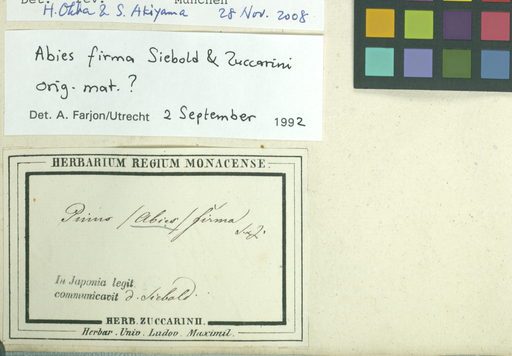 München
H. Ohba & S. Akiyama 28 Nov. 2008
Abies firma Siebold & Zuccarini
orig. mat. ?
Det. A. Farjon/Utrecht 2 September 1992
HERBARIUM REGIUM MONACENSE.
Pinus /Abies/ firma
S. & Z.
In Japonia legit
communicavit d. Siebold.
HERB. ZUCCARINII.
Herbar. Univ. Ludov. Maximil.